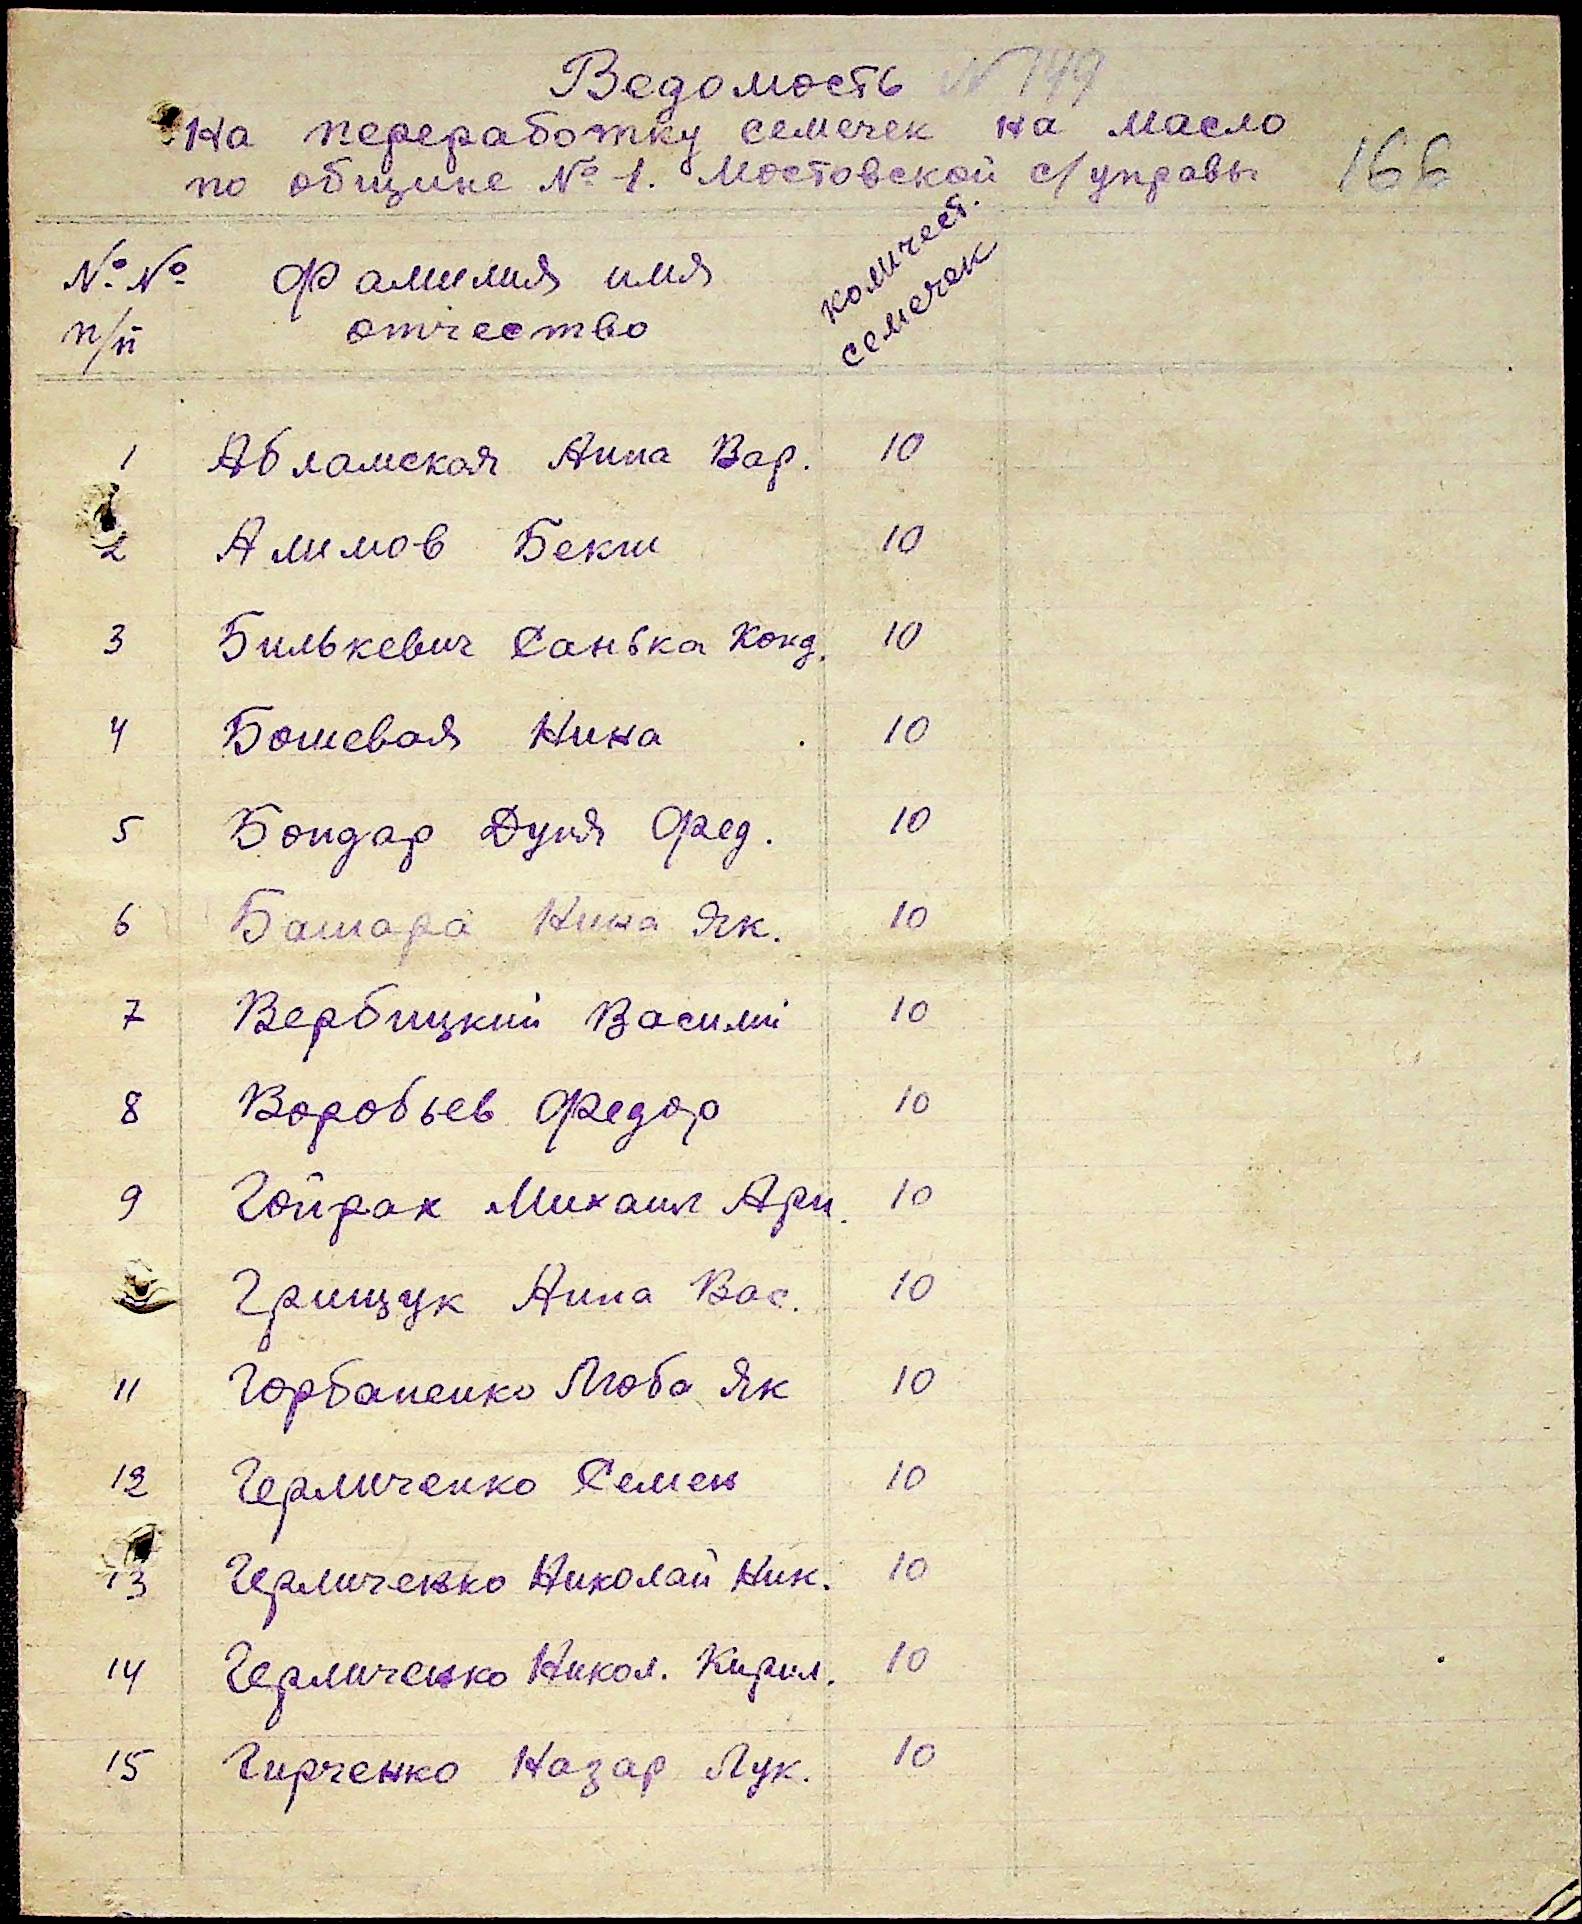 Ведомость N 149
на переработку семечек на масло
по общине № 1. Мостовской с/управы 166
№ № п/п Фамилия имя отчество количест. семечек
1 Абламская Анна Вар. 10
2 Алимов Бекш 10
3 Билькевич Санька Конд. 10
4 Бошевая Нина 10
5 Бондар Дуня Фед. 10
6 Башара Нина Як. 10
7 Вербицкий Василий 10
8 Воробьев Федор 10
9 Гойрак Михаил 10
Грищук Анна Вас. 10
11 Горбаненко Люба Як 10
12 Герличенко Семен 10
13 Герличенко Николай Ник. 10
14 Герличенко Никол. Кирил. 10
15 Гирченко Назар Лук. 10